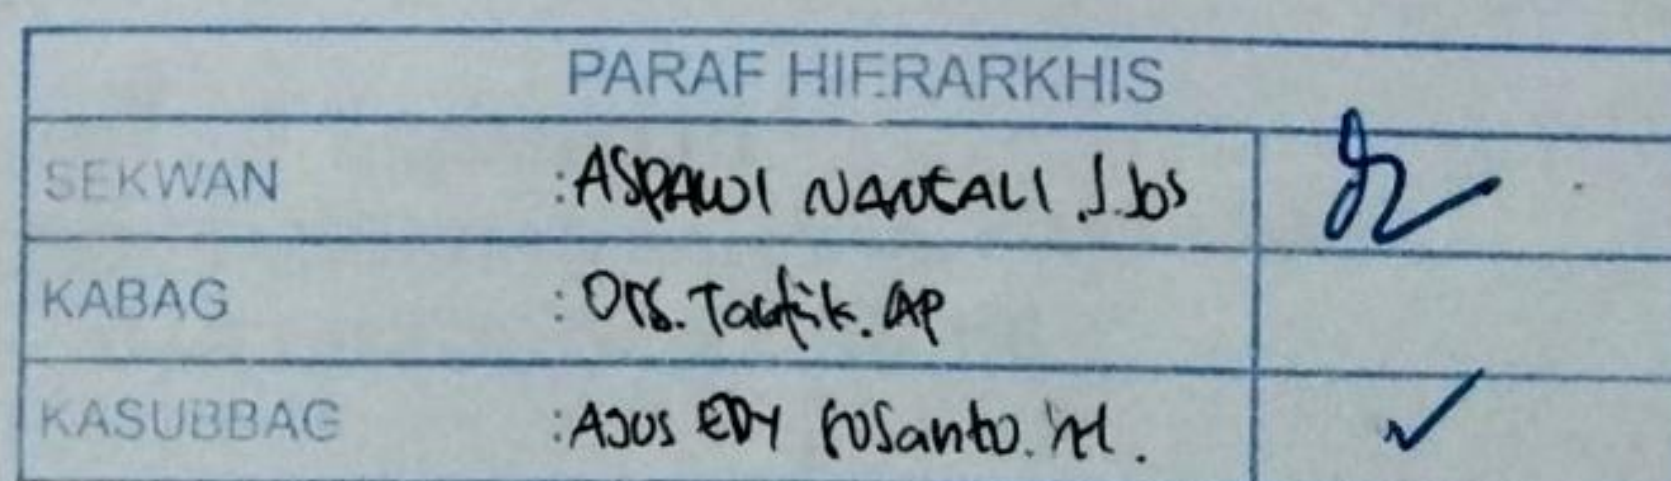 PARAF HIERARKHIS
SEKWAN : ASPAWI NANGALI
KABAG : Drs. Taufik. AP
KASUBBAG : AGUS EDY SUSanto.